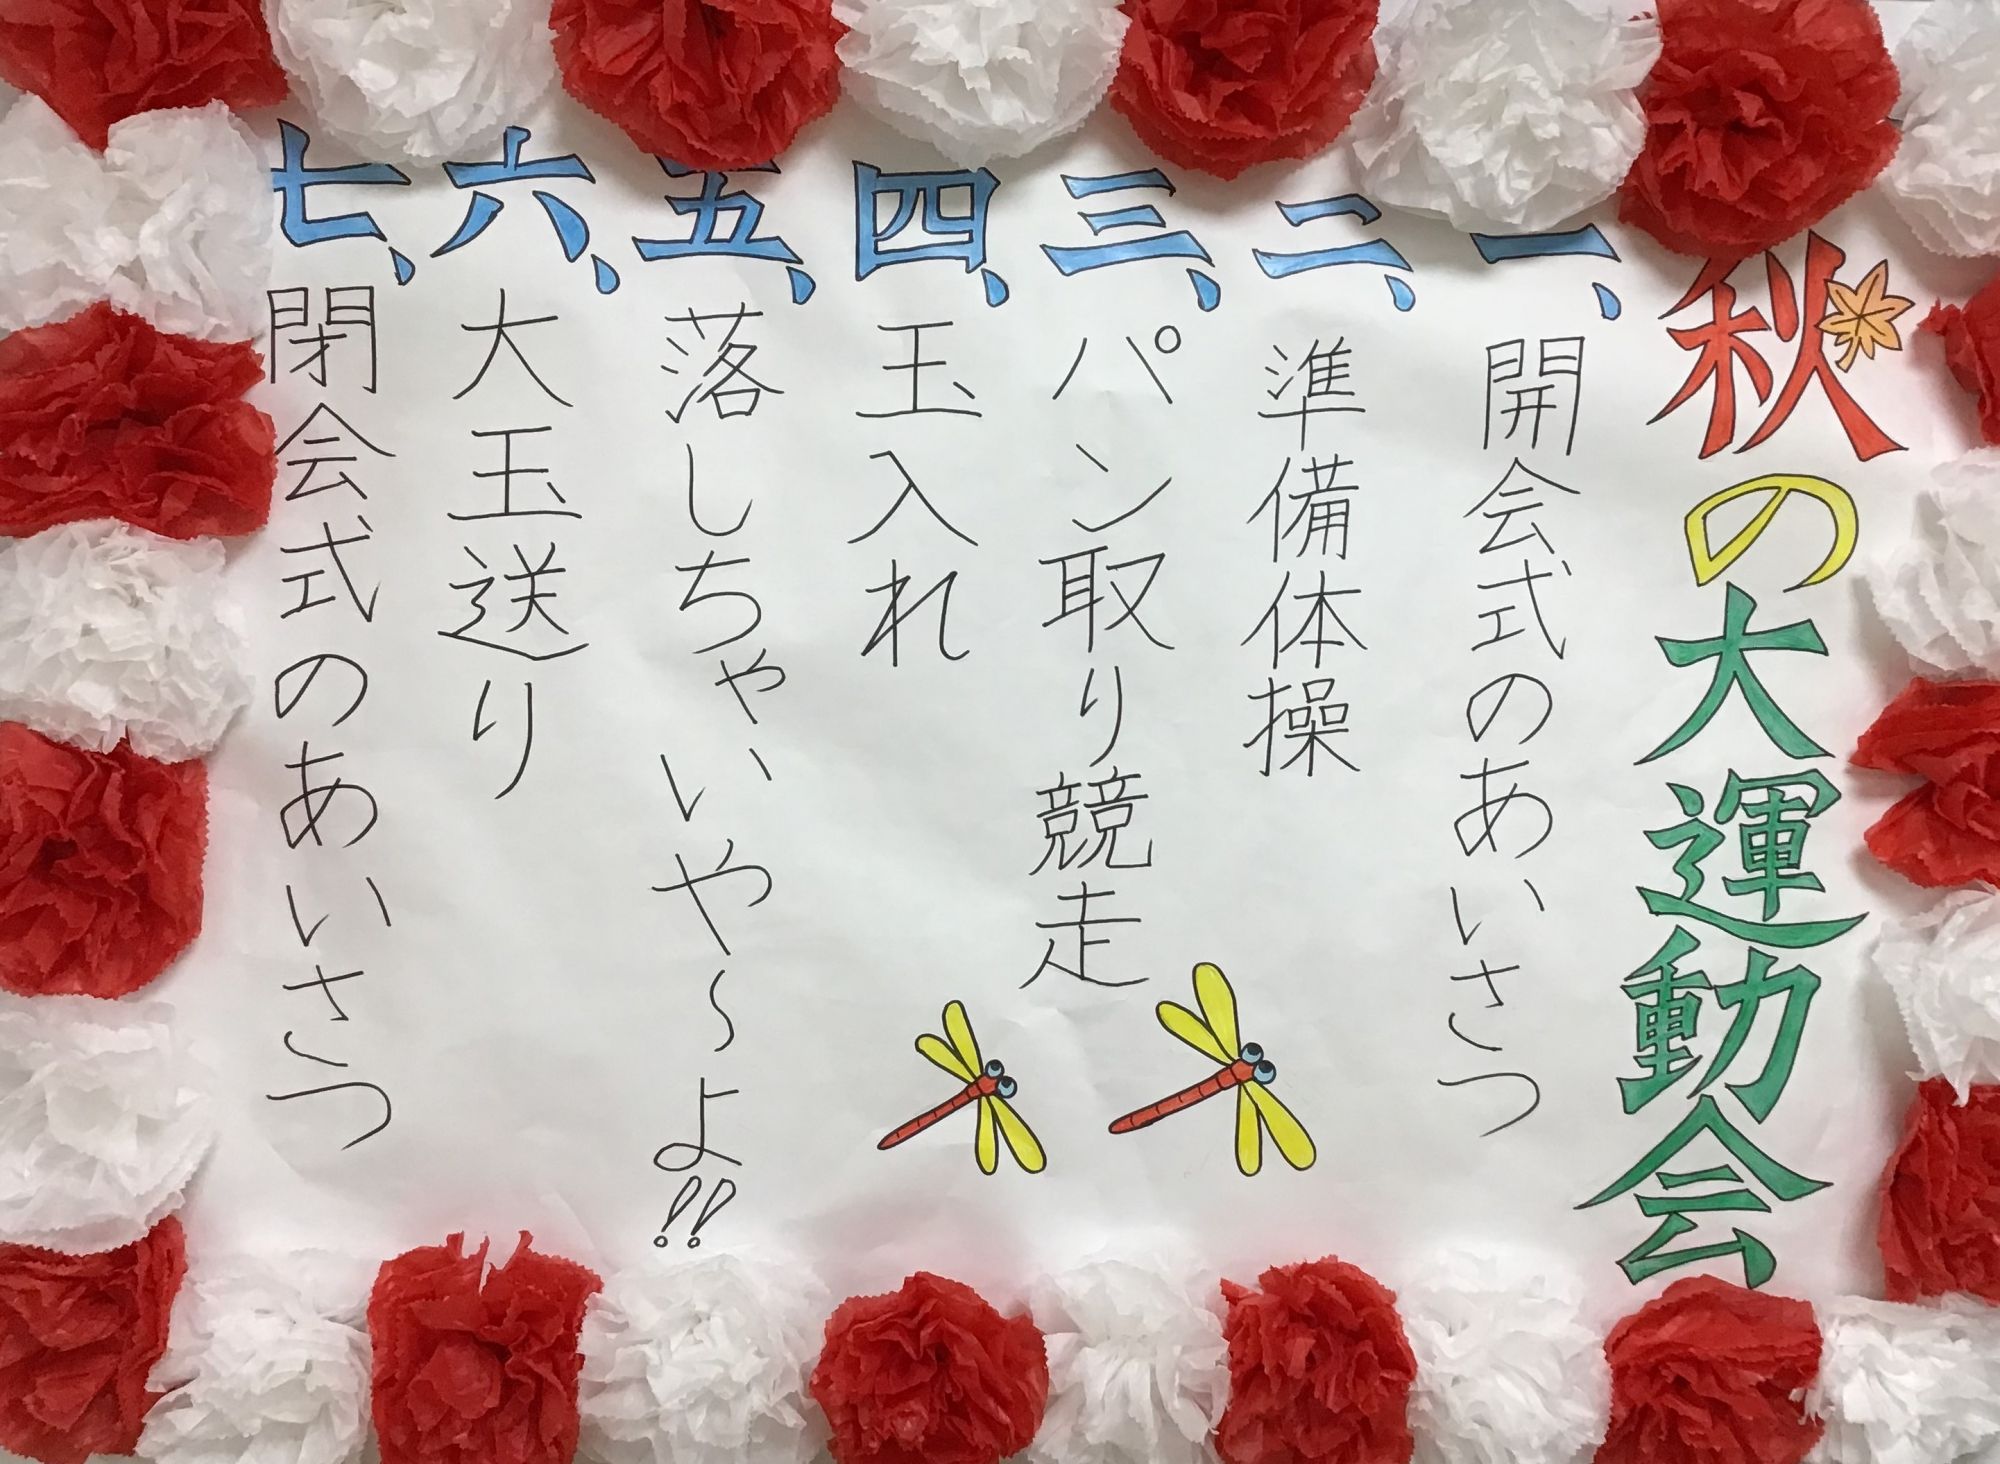 秋の大運動会
一、開会式のあいさつ
二、準備体操
三、パン取り競走
四、玉入れ
五、落しちゃいいや～よ!!
六、大玉送り
七、閉会式のあいさつ